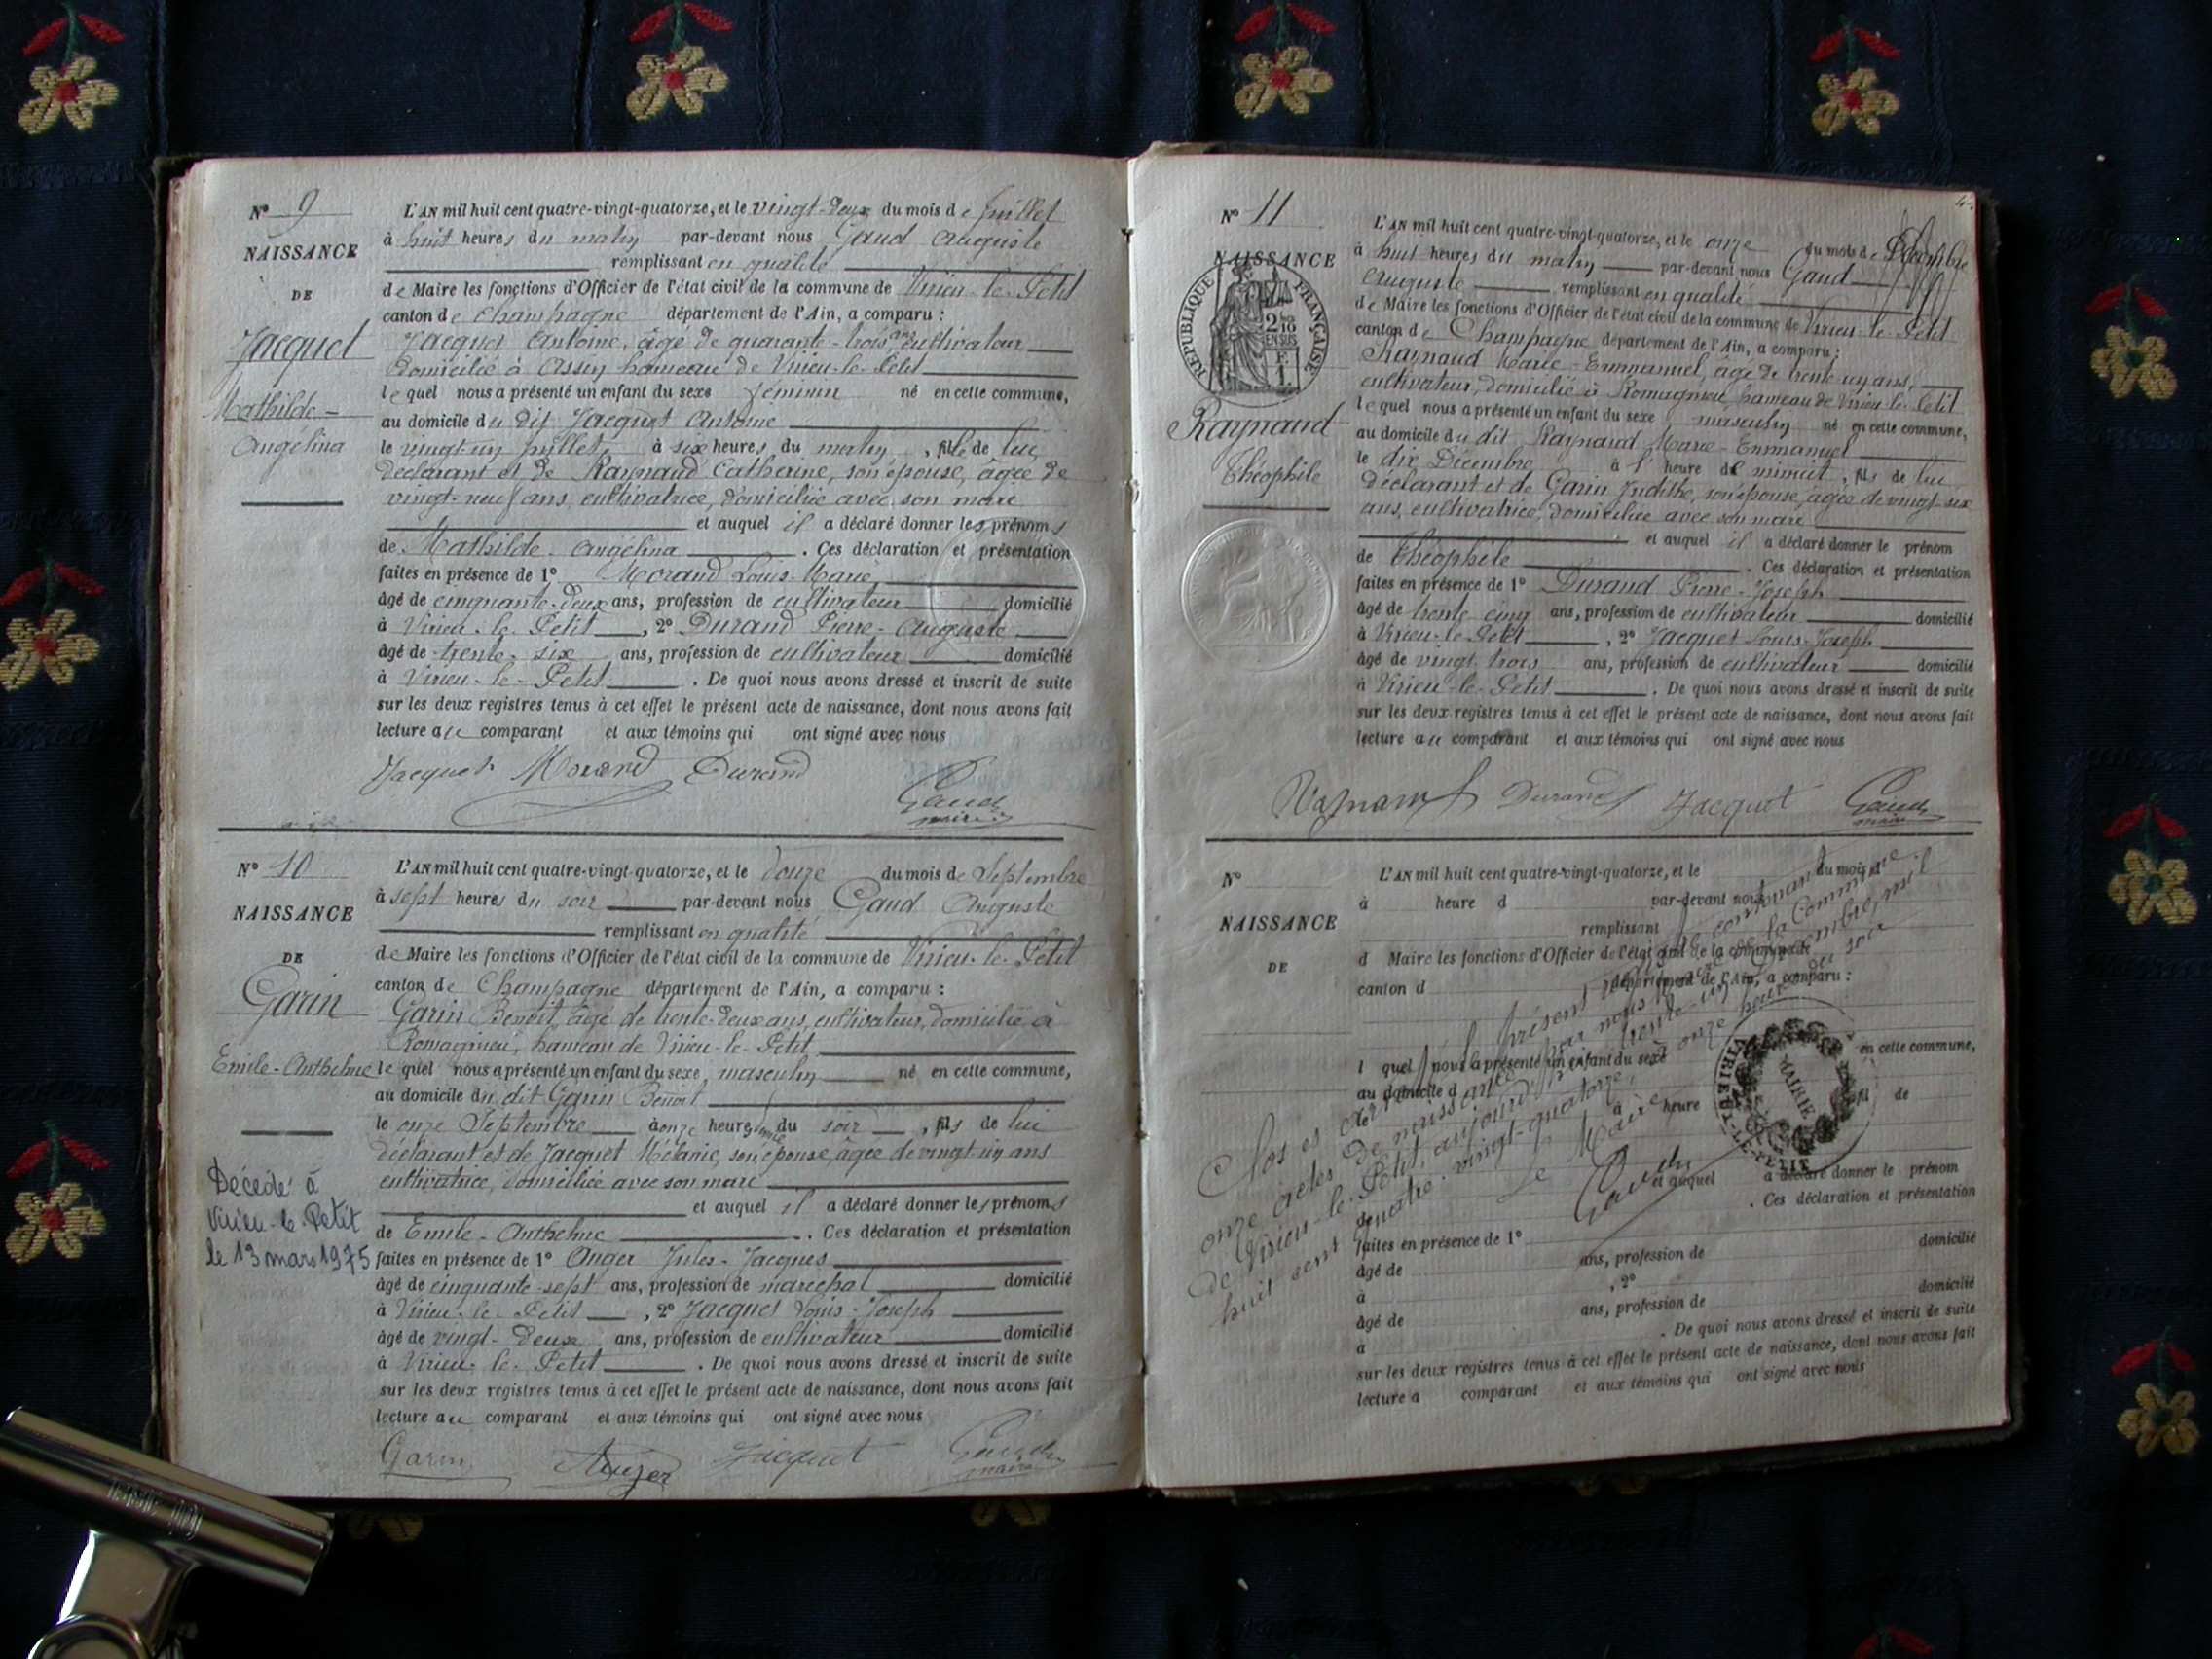 N° 9
NAISSANCE
DE
Jacquet
Mathilde-
Angélina
L'AN mil huit cent quatre-vingt-quatorze, et le vingt-deux du mois de Juillet
à huit heures du matin par-devant nous Gaud Auguste
remplissant en qualité
de Maire les fonctions d'Officier de l'état civil de la commune de Virieu-le-Petit
canton de Champagne département de l'Ain, a comparu :
Jacquet Antoine, âgé de quarante-trois ans cultivateur
domicilié à Assin hameau de Virieu-le-Petit
lequel nous a présenté un enfant du sexe féminin né en cette commune,
au domicile du dit Jacquet Antoine
le vingt-un juillet à six heures du matin, fille de lui
déclarant et de Raynaud Catherine, son épouse, âgée de
vingt-neuf ans, cultivatrice, domiciliée avec son mari
et auquel il a déclaré donner les prénoms
de Mathilde-Angélina . Ces déclaration et présentation
faites en présence de 1° Morand Louis-Marie,
âgé de cinquante-deux ans, profession de cultivateur domicilié
à Virieu-le-Petit , 2° Durand Pierre-Auguste
âgé de trente-six ans, profession de cultivateur domicilié
à Virieu-le-Petit . De quoi nous avons dressé et inscrit de suite
sur les deux registres tenus à cet effet le présent acte de naissance, dont nous avons fait
lecture au comparant et aux témoins qui ont signé avec nous
Jacquet Morand Durand Gaud
maire
N° 10
NAISSANCE
DE
Garin
Emile-Anthelme
Décédé à
Virieu-le-Petit
le 13 mars 1975
L'AN mil huit cent quatre-vingt-quatorze, et le douze du mois de Septembre
à sept heures du soir par-devant nous Gaud Auguste
remplissant en qualité
de Maire les fonctions d'Officier de l'état civil de la commune de Virieu-le-Petit
canton de Champagne département de l'Ain, a comparu :
Garin Benoit, âgé de trente-deux ans, cultivateur, domicilié à
Romagnieu, hameau de Virieu-le-Petit
lequel nous a présenté un enfant du sexe masculin né en cette commune,
au domicile du dit Garin Benoit
le onze Septembre à onze heures du soir , fils de lui
déclarant et de Jacquet Mélanie, son épouse, âgée de vingt-un ans
cultivatrice, domiciliée avec son mari
et auquel il a déclaré donner les prénoms
de Emile-Anthelme . Ces déclaration et présentation
faites en présence de 1° Auger Jules-Jacques
âgé de cinquante-sept ans, profession de maréchal domicilié
à Virieu-le-Petit , 2° Jacquet Louis-Joseph
âgé de vingt-deux ans, profession de cultivateur domicilié
à Virieu-le-Petit . De quoi nous avons dressé et inscrit de suite
sur les deux registres tenus à cet effet le présent acte de naissance, dont nous avons fait
lecture au comparant et aux témoins qui ont signé avec nous
Garin Auger Jacquet Gaud
maire
N° 11
NAISSANCE
RÉPUBLIQUE FRANÇAISE
2/10 EN SUS
F. 1
Raynaud
Théophile
L'AN mil huit cent quatre-vingt-quatorze, et le onze du mois de Décembre
à huit heures du matin par-devant nous Gaud
Auguste remplissant en qualité
de Maire les fonctions d'Officier de l'état civil de la commune de Virieu-le-Petit
canton de Champagne département de l'Ain, a comparu :
Raynaud Marie-Emmanuel, âgé de trente-un ans,
cultivateur, domicilié à Romagnieu, hameau de Virieu-le-Petit
lequel nous a présenté un enfant du sexe masculin né en cette commune,
au domicile du dit Raynaud Marie-Emmanuel
le dix Décembre à l'heure de minuit, fils de lui
déclarant et de Garin Judithe, son épouse, âgée de vingt-six
ans, cultivatrice, domiciliée avec son mari
et auquel il a déclaré donner le prénom
de Théophile . Ces déclaration et présentation
faites en présence de 1° Durand Pierre-Joseph
âgé de trente cinq ans, profession de cultivateur domicilié
à Virieu-le-Petit , 2° Jacquet Louis-Joseph
âgé de vingt trois ans, profession de cultivateur domicilié
à Virieu-le-Petit . De quoi nous avons dressé et inscrit de suite
sur les deux registres tenus à cet effet le présent acte de naissance, dont nous avons fait
lecture au comparant et aux témoins qui ont signé avec nous
Durand Jacquet Gaud
maire
N°
NAISSANCE
DE
L'AN mil huit cent quatre-vingt-quatorze, et le du mois d
à heure d par-devant nous
remplissant
d Maire les fonctions d'Officier de l'état civil de la commune de
canton d département de l'Ain, a comparu :
l quel nous a présenté un enfant du sexe en cette commune,
au domicile d
le à heure fil de
et auquel a déclaré donner le prénom
de . Ces déclaration et présentation
faites en présence de 1°
âgé de ans, profession de domicilié
à , 2°
âgé de ans, profession de domicilié
à . De quoi nous avons dressé et inscrit de suite
sur les deux registres tenus à cet effet le présent acte de naissance, dont nous avons fait
lecture a comparant et aux témoins qui ont signé avec nous
Clos et présent registre contenant
onze actes de naissance par nous Maire de la Commune
de Virieu-le-Petit, aujourd'hui trente-un Décembre, mil
huit cent quatre-vingt-quatorze, à onze heures du soir
Le Maire
Gaud
MAIRIE
VIRIEU-LE-PETIT